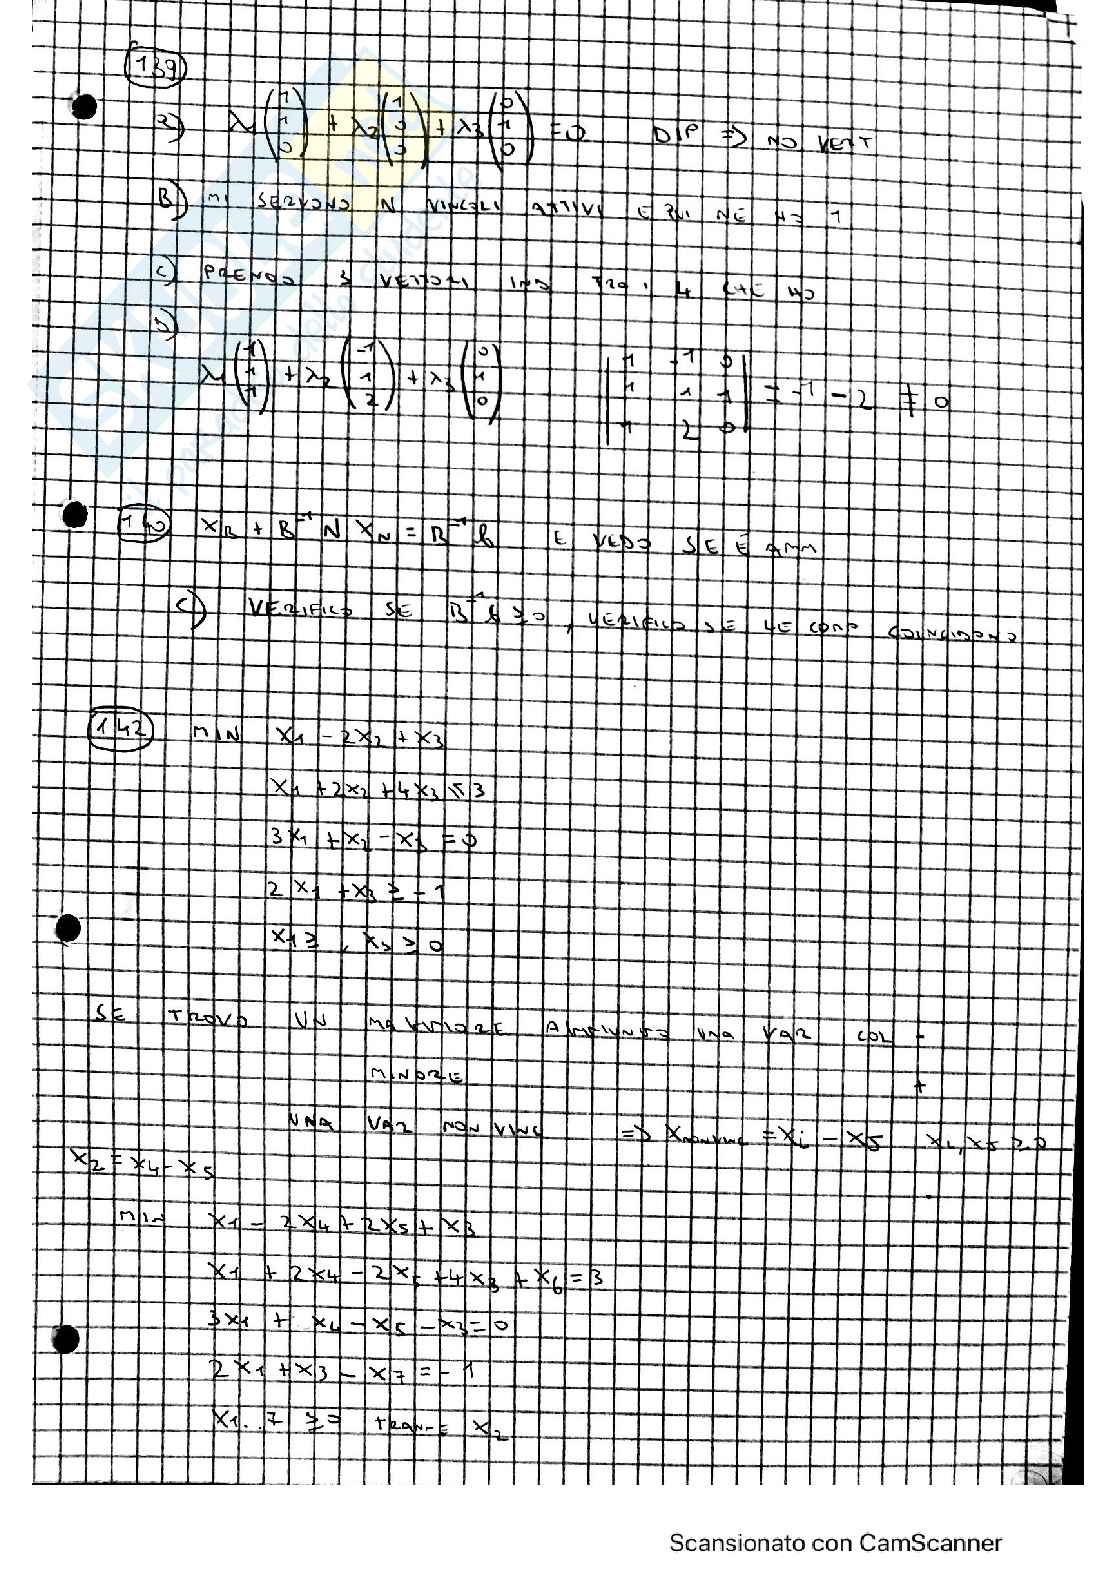 139
a) λ1 (1 1 0) + λ2 (1 0 0) + λ3 (0 1 0) = 0 DIP => NO VERT
B) MI SERVONO N VINCOLI ATTIVI E QUI NE HO 1
C) PRENDO 3 VETTORI IND TRA I 4 CHE HO
D)
λ1 (1 1 1) + λ2 (-1 1 2) + λ3 (0 1 0) |1 -1 0 / 1 1 1 / 1 2 0| = -1 - 2 ≠ 0
140 XB + B⁻¹ N XN = B⁻¹ b E VEDO SE È AMM
C) VERIFICO SE B⁻¹ b ≥ 0, VERIFICO SE LE COMP COINCIDONO
142 MIN X1 - 2X2 + X3
X1 + 2X2 + 4X3 ≤ 3
3X1 + X2 - X3 = 0
2X1 + X3 ≥ -1
X1 ≥ , X3 ≥ 0
SE TROVO UN MAGGIORE AGGIUNGO UNA VAR COL -
MINORE +
UNA VAR NON VINC => XNONVINC = Xi - X5 Xi, X5 ≥ 0
X2 = X4 - X5
MIN X1 - 2X4 + 2X5 + X3
X1 + 2X4 - 2X5 + 4X3 + X6 = 3
3X1 + X4 - X5 - X3 = 0
2X1 + X3 - X7 = -1
X1..7 ≥ 0 TRANNE X2
Scansionato con CamScanner